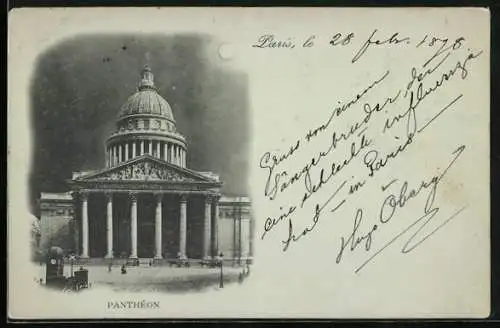 Paris, le 28 febr. 1898
Gruss von einem
Sängerbruder der
eine schlechte influenza
hat – in Paris –
Hugo Öberg.
PANTHÉON